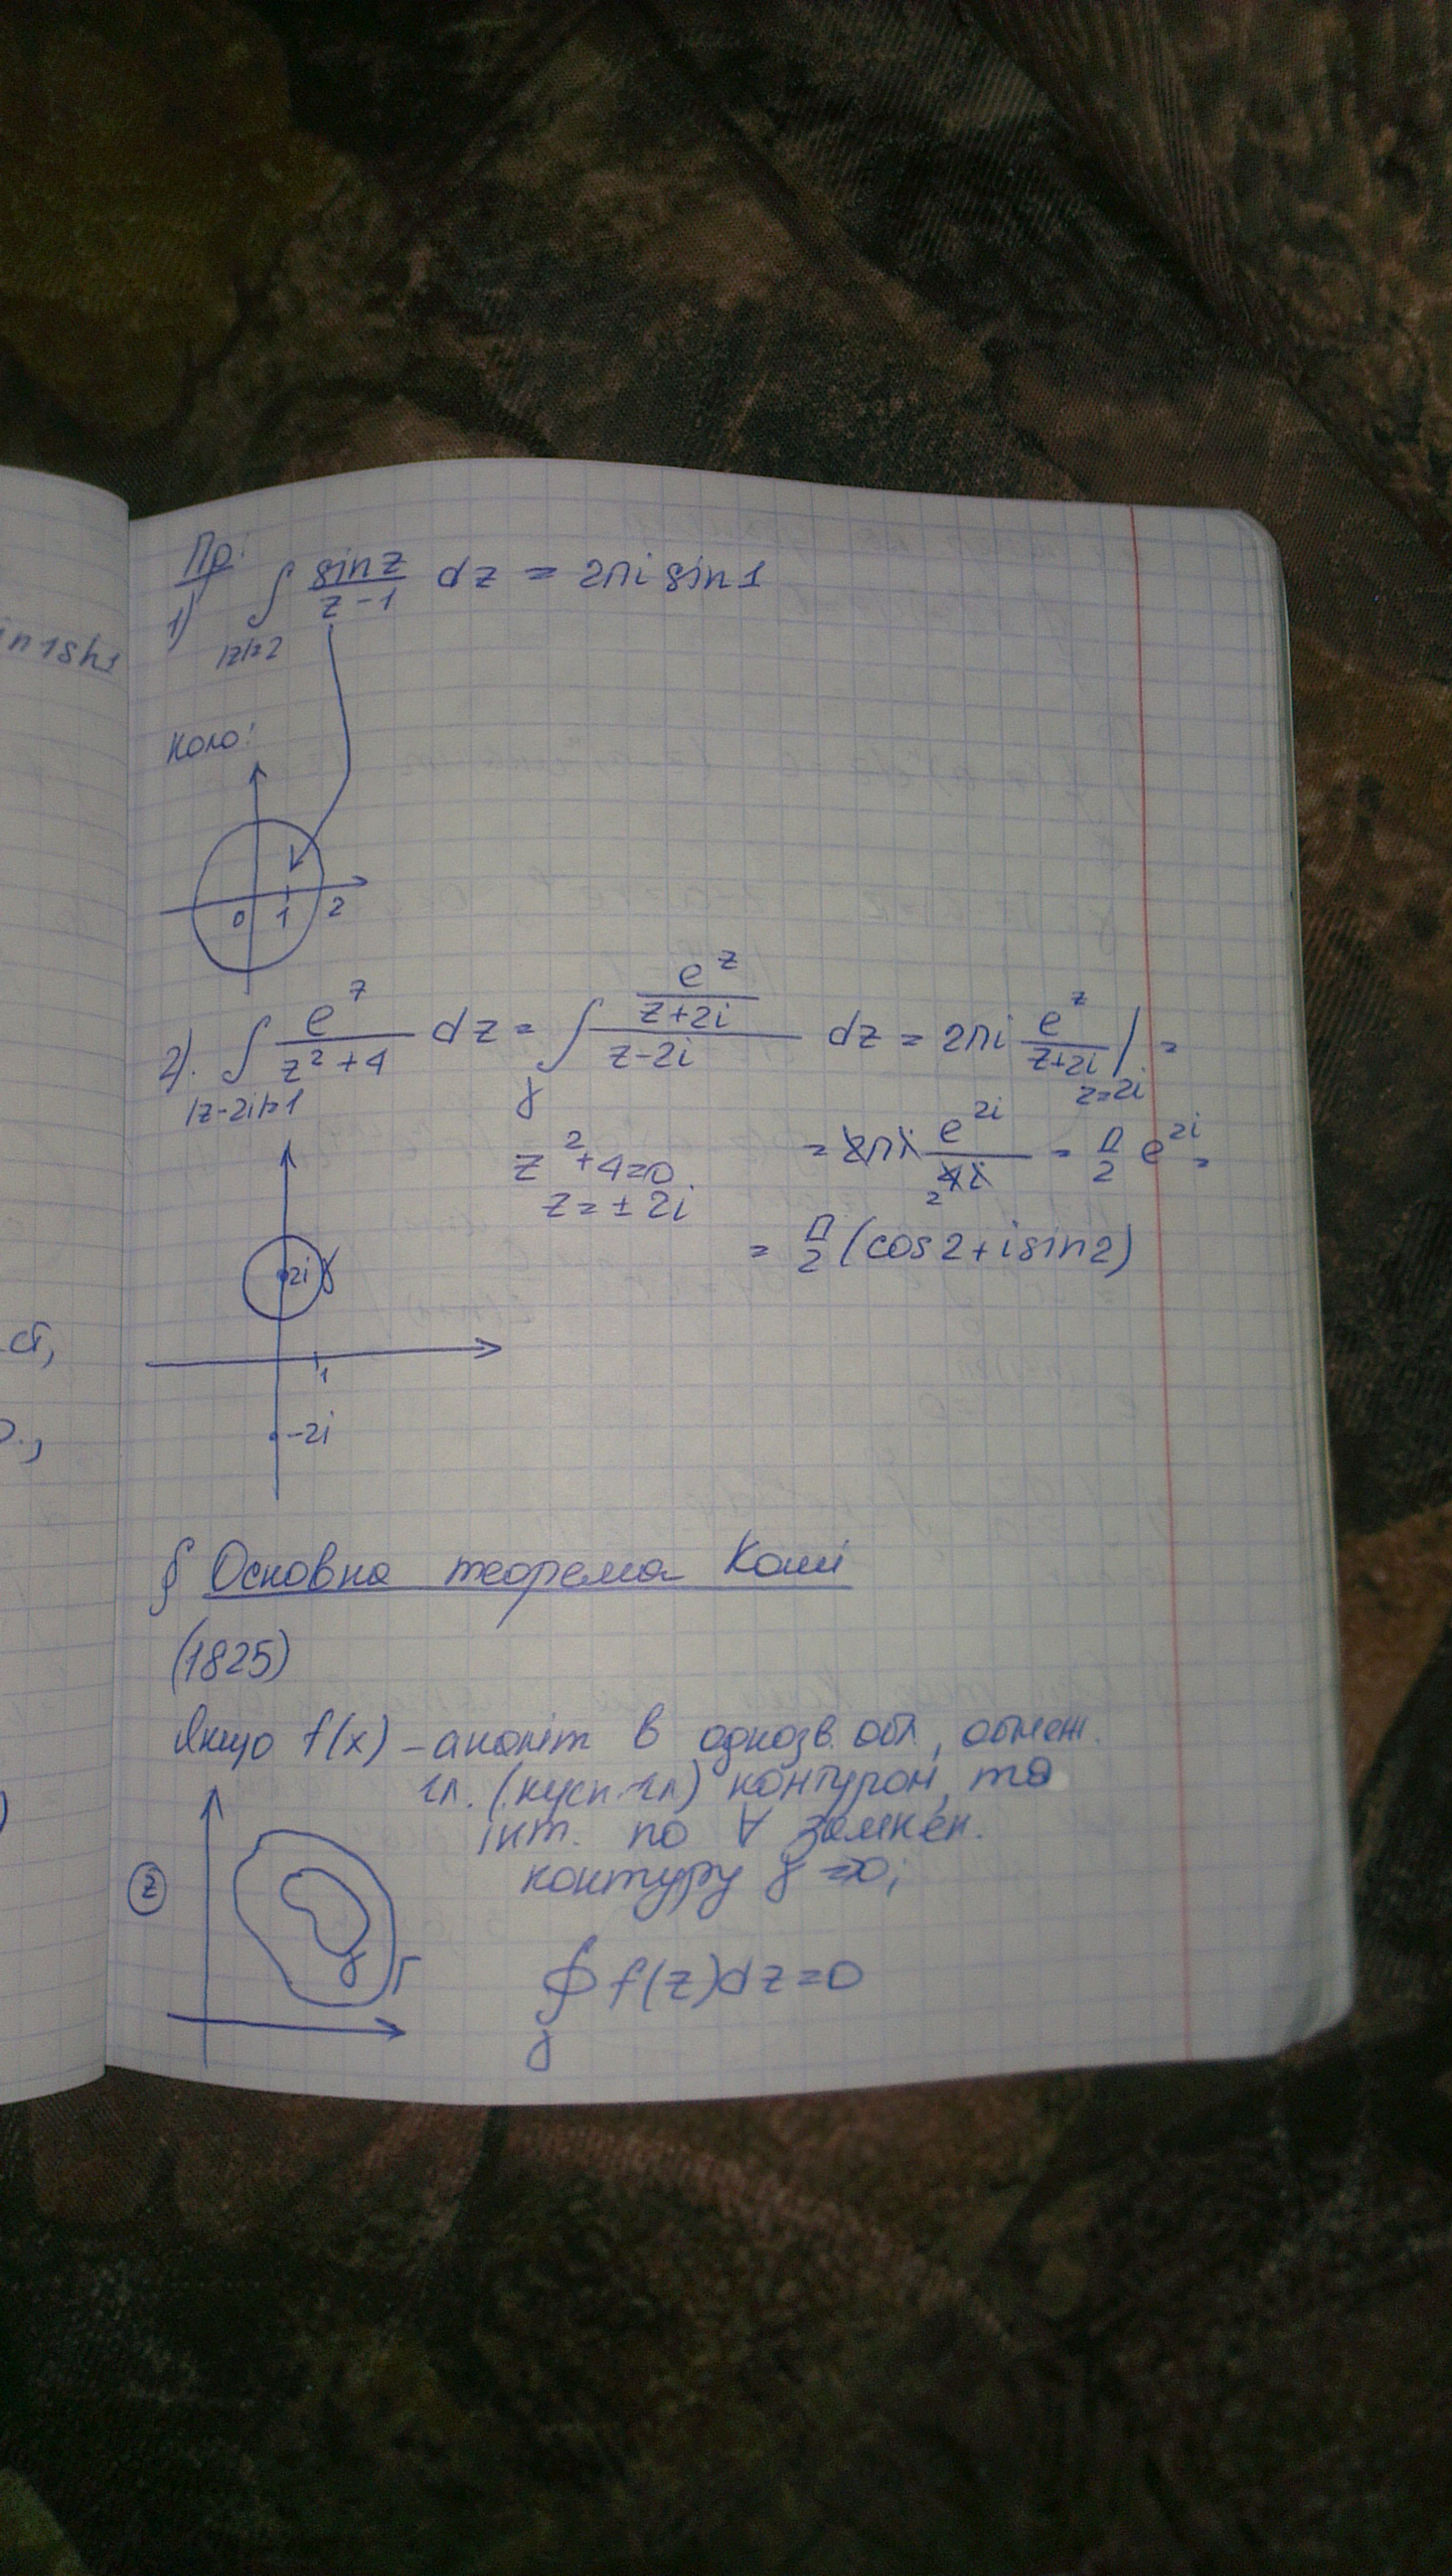 in 1sh1
Пр:
1) ∫ sinz/(z-1) dz = 2πi sin1
|z|=2
Коло:
0 1 2
2). ∫ e^z/(z²+4) dz = ∫ (e^z/(z+2i))/(z-2i) dz = 2πi e^z/(z+2i) | =
|z-2i|=1 γ z=2i
z²+4=0
z=±2i
= 2πi e^2i/4i = π/2 e^2i =
2
= π/2 (cos2+isin2)
2i γ
1
-2i
ст,
§ Основна теорема Коші
(1825)
Якщо f(x) – аналіт в однозв. обл, обмеж.
гл. (кусп. гл) контуром, то
інт. по ∀ замкен.
контуру γ =0;
z
γ Γ
∮ f(z)dz=0
γ